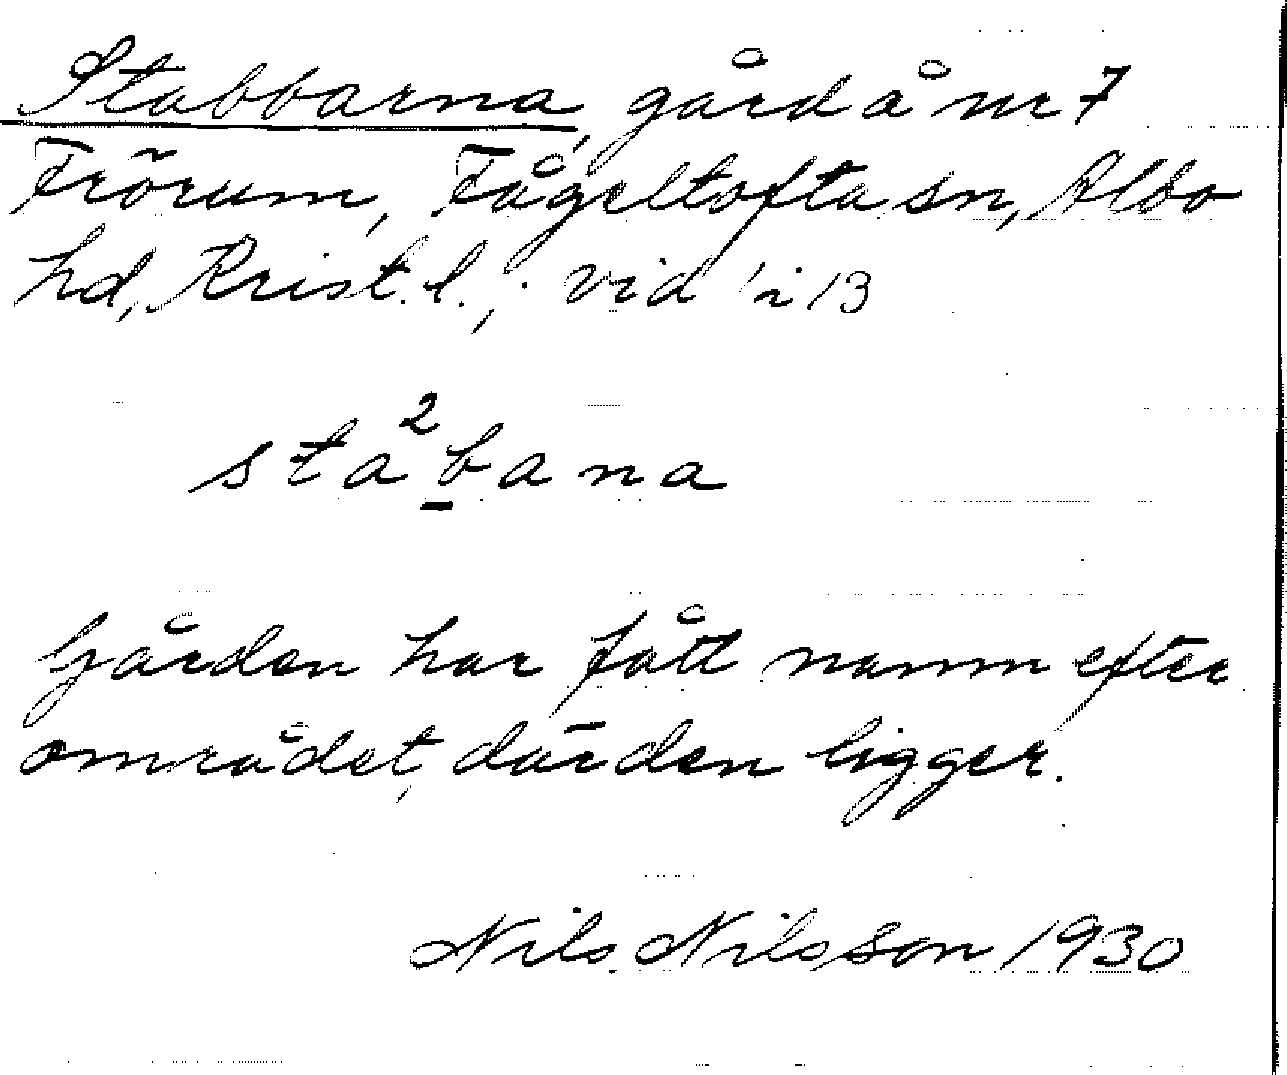 Stabbarna, gård å nr 7
Frörum, Fågeltofta sn, Albo
hd, Krist. l.; vid 'i 13
sta²b̲ana
Gården har fått namn efter
området, där den ligger.
Nils Nilsson 1930